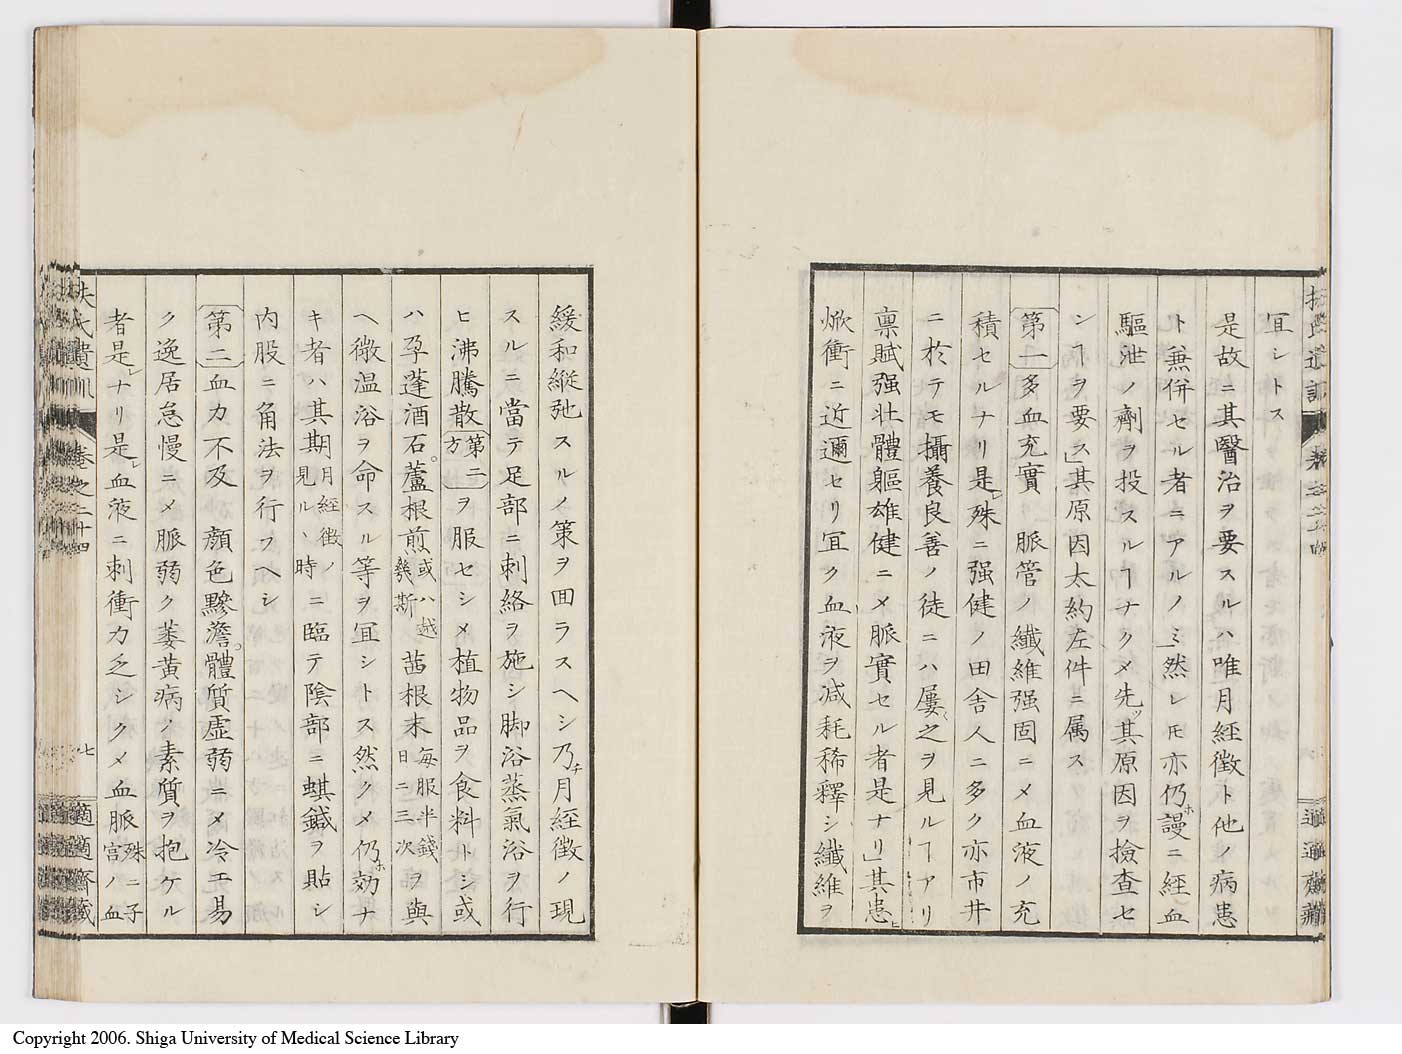 宜シトス
是故ニ其醫治ヲ要スルハ唯月經徴ト他ノ病患
ト兼併セル者ニアルノミ」然レ𪜈亦仍ホ謾ニ經血
驅泄ノ劑ヲ投スルヿナクメ先ツ其原因ヲ撿査セ
シヿヲ要ス」其原因太約左件ニ属ス
第一 多血充實 脈管ノ纖維强固ニメ血液ノ充
積セルナリ是レ殊ニ强健ノ田舎人ニ多ク亦市井
ニ於テモ攝養良善ノ徒ニハ屢〻之ヲ見ルヿアリ
禀賦强壮體軀雄健ニメ脈實セル者是ナリ」其患ヒ
焮衝ニ近邇セリ宜ク血液ヲ减耗稀釋シ纖維ヲ
緩和縦弛スルノ策ヲ回ラスヘシ乃チ月經徴ノ現
スルニ當テ足部ニ刺絡ヲ施シ脚浴蒸氣浴ヲ行
ヒ沸騰散第二方ヲ服セシメ植物品ヲ食料トシ或
ハ孕蓬酒石。蘆根煎或ハ越幾斯茁根末毎服半錢日ニ三次ヲ與
ヘ微温浴ヲ命スル等ヲ宜シトス然クメ仍ホ効ナ
キ者ハ其期月經徴ノ見ルヽ時ニ臨テ陰部ニ蜞鍼ヲ貼シ
内股ニ角法ヲ行フヘシ
第二 血力不及 顔色黲澹。體質虚弱ニメ冷エ易
ク逸居怠慢ニメ脈弱ク萎黄病ノ素質ヲ抱ケル
者是レナリ是レ血液ニ刺衝力乏シクメ血脈殊ニ子宮ノ血
扶氏遺訓 卷之二十四 七 適適齋藏